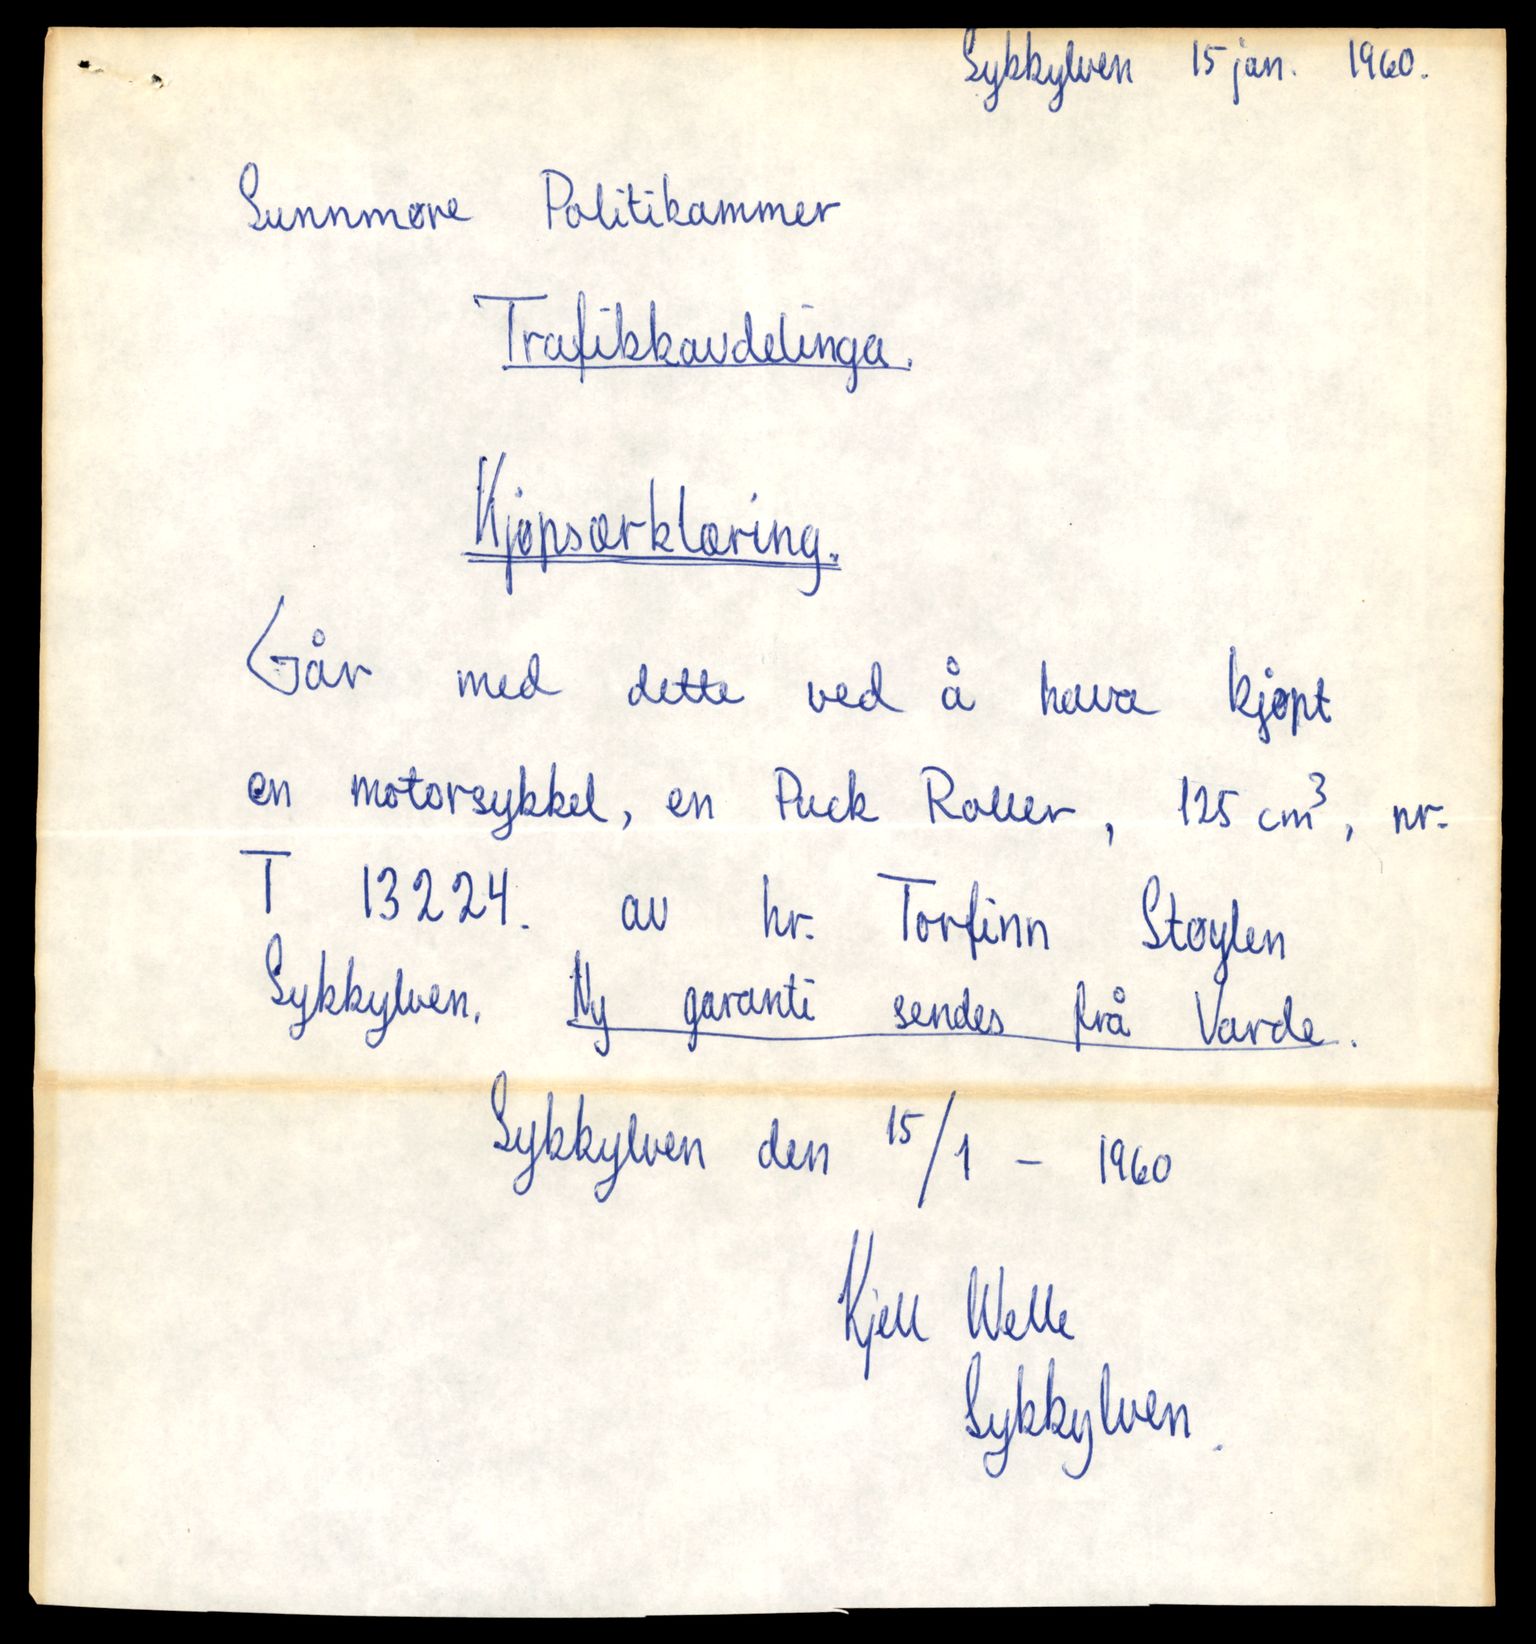 Sykkylven 15 jan. 1960.
Sunnmøre Politikammer
Trafikkavdelinga.
Kjøpsærklæring.
Går med dette ved å hava kjøpt
en motorsykkel, en Puck Roller, 125 cm³, nr.
T 13224. av hr. Torfinn Støylen
Sykkylven. Ny garanti sendes frå Varde.
Sykkylven den 15/1 - 1960
Kjell Welle
Sykkylven.